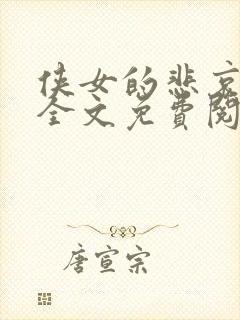 侠女的悲哀
全文免费阅
唐宣宗